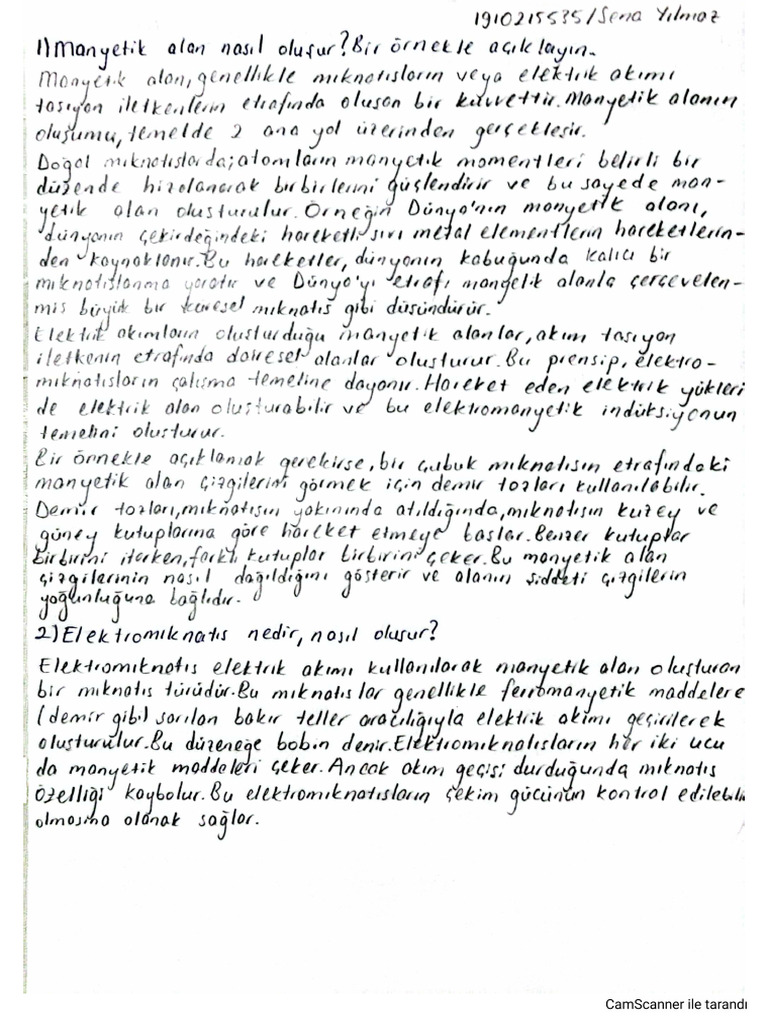 1910215535/Sena Yılmaz
1) Manyetik alan nasıl oluşur? Bir örnekle açıklayın.
Manyetik alan, genellikle mıknatısların veya elektrik akımı
taşıyan iletkenlerin etrafında oluşan bir kuvvettir. Manyetik alanın
oluşumu, temelde 2 ana yol üzerinden gerçekleşir.
Doğal mıknatıslarda; atomların manyetik momentleri belirli bir
düzende hizalanarak birbirlerini güçlendirir ve bu sayede man-
yetik alan oluşturulur. Örneğin Dünya'nın manyetik alanı,
dünyanın çekirdeğindeki hareketli sıvı metal elementlerin hareketlerin-
den kaynaklanır. Bu hareketler, dünyanın kabuğunda kalıcı bir
mıknatıslanma yaratır ve Dünya'yı etrafı manyetik alanla çerçevelen-
miş büyük bir küresel mıknatıs gibi düşündürür.
Elektrik akımların oluşturduğu manyetik alanlar, akım taşıyan
iletkenin etrafında dairesel alanlar oluşturur. Bu prensip, elektro-
mıknatısların çalışma temeline dayanır. Hareket eden elektrik yükleri
de elektrik alan oluşturabilir ve bu elektromanyetik indüksiyonun
temelini oluşturur.
Bir örnekle açıklamak gerekirse, bir çubuk mıknatısın etrafındaki
manyetik alan çizgilerini görmek için demir tozları kullanılabilir.
Demir tozları, mıknatısın yakınında atıldığında, mıknatısın kuzey ve
güney kutuplarına göre hareket etmeye başlar. Benzer kutuplar
birbirini iterken, farklı kutuplar birbirini çeker. Bu manyetik alan
çizgilerinin nasıl dağıldığını gösterir ve alanın şiddeti çizgilerin
yoğunluğuna bağlıdır.
2) Elektromıknatıs nedir, nasıl oluşur?
Elektromıknatıs elektrik akımı kullanılarak manyetik alan oluşturan
bir mıknatıs türüdür. Bu mıknatıslar genellikle ferromanyetik maddelere
(demir gibi) sarılan bakır teller aracılığıyla elektrik akımı geçirilerek
oluşturulur. Bu düzeneğe bobin denir. Elektromıknatısların her iki ucu
da manyetik maddeleri çeker. Ancak akım geçişi durduğunda mıknatıs
özelliği kaybolur. Bu elektromıknatısların çekim gücünün kontrol edilebilir
olmasına olanak sağlar.
CamScanner ile tarandı